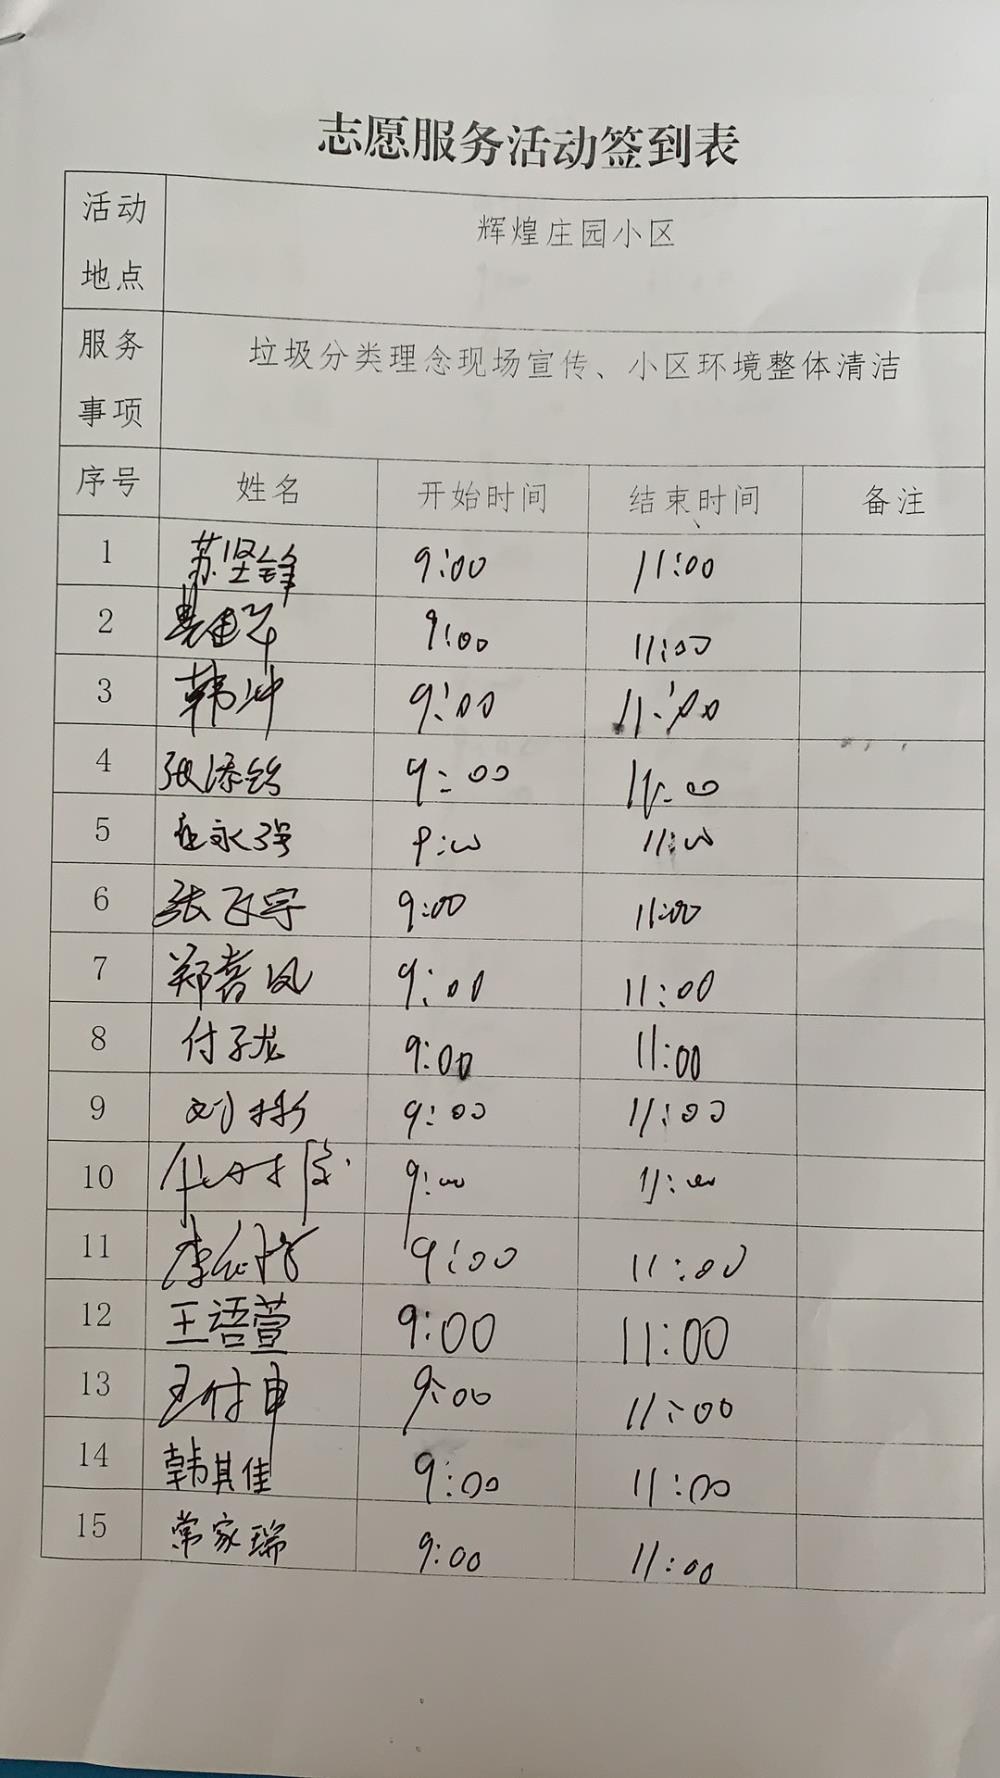 志愿服务活动签到表
活动地点 辉煌庄园小区
服务事项 垃圾分类理念现场宣传、小区环境整体清洁
序号 姓名 开始时间 结束时间 备注
1 苏坚锋 9:00 11:00
2 9:00 11:00
3 韩坤 9:00 11:00
4 张添铭 9:00 11:00
5 永强 9:00 11:00
6 张飞宇 9:00 11:00
7 郑喜凤 9:00 11:00
8 付子龙 9:00 11:00
9 刘彬 9:00 11:00
10 9:00 11:00
11 李 9:00 11:00
12 王语萱 9:00 11:00
13 王付申 9:00 11:00
14 韩其佳 9:00 11:00
15 常家瑞 9:00 11:00